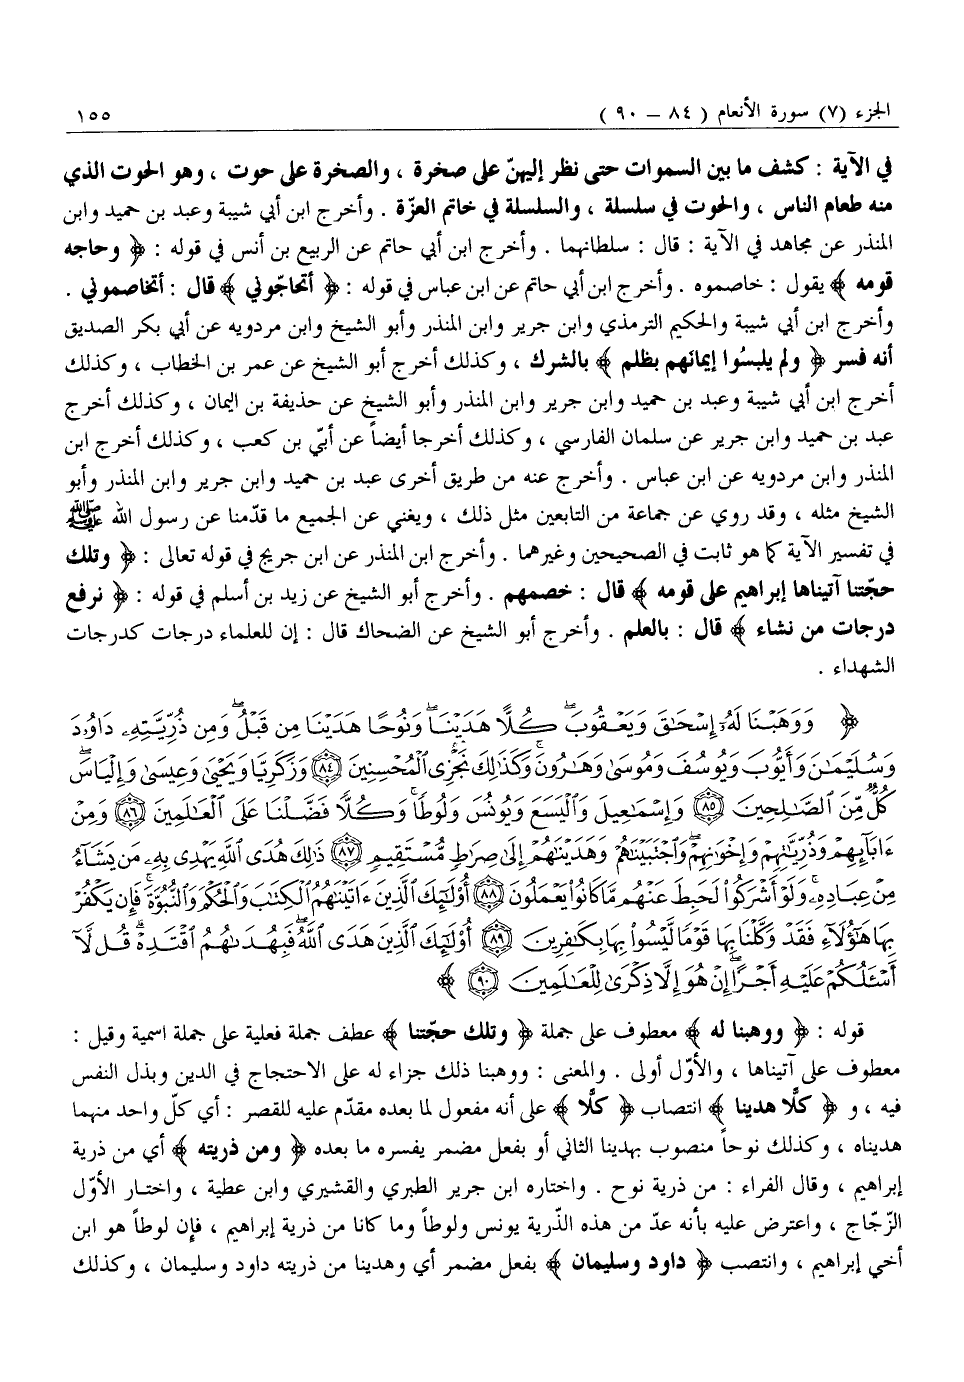 الجزء (٧) سورة الأنعام ( ٨٤ – ٩٠ ) ١٥٥
في الآية : كشف ما بين السموات حتى نظر إليهنّ على صخرة ، والصخرة على حوت ، وهو الحوت الذي
منه طعام الناس ، والحوت في سلسلة ، والسلسلة في خاتم العزّة . وأخرج ابن أبي شيبة وعبد بن حميد وابن
المنذر عن مجاهد في الآية : قال : سلطانهما . وأخرج ابن أبي حاتم عن الربيع بن أنس في قوله : ﴿ وحاجه
قومه ﴾ يقول : خاصموه . وأخرج ابن أبي حاتم عن ابن عباس في قوله : ﴿ أتحاجّوني ﴾ قال : أتخاصموني .
وأخرج ابن أبي شيبة والحكيم الترمذي وابن جرير وابن المنذر وأبو الشيخ وابن مردويه عن أبي بكر الصديق
أنه فسر ﴿ ولم يلبسُوا إيمانهم بظلم ﴾ بالشرك ، وكذلك أخرج أبو الشيخ عن عمر بن الخطاب ، وكذلك
أخرج ابن أبي شيبة وعبد بن حميد وابن جرير وابن المنذر وأبو الشيخ عن حذيفة بن اليمان ، وكذلك أخرج
عبد بن حميد وابن جرير عن سلمان الفارسي ، وكذلك أخرجا أيضاً عن أبيّ بن كعب ، وكذلك أخرج ابن
المنذر وابن مردويه عن ابن عباس . وأخرج عنه من طريق أخرى عبد بن حميد وابن جرير وابن المنذر وأبو
الشيخ مثله ، وقد روي عن جماعة من التابعين مثل ذلك ، ويغني عن الجميع ما قدّمنا عن رسول الله ﷺ
في تفسير الآية كما هو ثابت في الصحيحين وغيرهما . وأخرج ابن المنذر عن ابن جريج في قوله تعالى : ﴿ وتلك
حجّتنا آتيناها إبراهيم على قومه ﴾ قال : خصمهم . وأخرج أبو الشيخ عن زيد بن أسلم في قوله : ﴿ نرفع
درجات من نشاء ﴾ قال : بالعلم . وأخرج أبو الشيخ عن الضحاك قال : إن للعلماء درجات كدرجات
الشهداء .
﴿ وَوَهَبْنَا لَهُۥٓ إِسْحَٰقَ وَيَعْقُوبَ ۚ كُلًّا هَدَيْنَا ۚ وَنُوحًا هَدَيْنَا مِن قَبْلُ ۖ وَمِن ذُرِّيَّتِهِۦ دَاوُۥدَ
وَسُلَيْمَٰنَ وَأَيُّوبَ وَيُوسُفَ وَمُوسَىٰ وَهَٰرُونَ ۚ وَكَذَٰلِكَ نَجْزِى ٱلْمُحْسِنِينَ ٨٤ وَزَكَرِيَّا وَيَحْيَىٰ وَعِيسَىٰ وَإِلْيَاسَ ۖ
كُلٌّ مِّنَ ٱلصَّٰلِحِينَ ٨٥ وَإِسْمَٰعِيلَ وَٱلْيَسَعَ وَيُونُسَ وَلُوطًا ۚ وَكُلًّا فَضَّلْنَا عَلَى ٱلْعَٰلَمِينَ ٨٦ وَمِنْ
ءَابَآئِهِمْ وَذُرِّيَّٰتِهِمْ وَإِخْوَٰنِهِمْ ۖ وَٱجْتَبَيْنَٰهُمْ وَهَدَيْنَٰهُمْ إِلَىٰ صِرَٰطٍ مُّسْتَقِيمٍ ٨٧ ذَٰلِكَ هُدَى ٱللَّهِ يَهْدِى بِهِۦ مَن يَشَآءُ
مِنْ عِبَادِهِۦ ۚ وَلَوْ أَشْرَكُوا۟ لَحَبِطَ عَنْهُم مَّا كَانُوا۟ يَعْمَلُونَ ٨٨ أُو۟لَٰٓئِكَ ٱلَّذِينَ ءَاتَيْنَٰهُمُ ٱلْكِتَٰبَ وَٱلْحُكْمَ وَٱلنُّبُوَّةَ ۚ فَإِن يَكْفُرْ
بِهَا هَٰٓؤُلَآءِ فَقَدْ وَكَّلْنَا بِهَا قَوْمًا لَّيْسُوا۟ بِهَا بِكَٰفِرِينَ ٨٩ أُو۟لَٰٓئِكَ ٱلَّذِينَ هَدَى ٱللَّهُ ۖ فَبِهُدَىٰهُمُ ٱقْتَدِهْ ۗ قُل لَّآ
أَسْـَٔلُكُمْ عَلَيْهِ أَجْرًا ۖ إِنْ هُوَ إِلَّا ذِكْرَىٰ لِلْعَٰلَمِينَ ٩٠ ﴾
قوله : ﴿ ووهبنا له ﴾ معطوف على جملة ﴿ وتلك حجّتنا ﴾ عطف جملة فعلية على جملة اسمية وقيل :
معطوف على آتيناها ، والأوّل أولى . والمعنى : ووهبنا ذلك جزاء له على الاحتجاج في الدين وبذل النفس
فيه ، و ﴿ كلًّا هدينا ﴾ انتصاب ﴿ كلًّا ﴾ على أنه مفعول لما بعده مقدّم عليه للقصر : أي كلّ واحد منهما
هديناه ، وكذلك نوحاً منصوب بهدينا الثاني أو بفعل مضمر يفسره ما بعده ﴿ ومن ذريته ﴾ أي من ذرية
إبراهيم ، وقال الفراء : من ذرية نوح . واختاره ابن جرير الطبري والقشيري وابن عطية ، واختار الأوّل
الزّجّاج ، واعترض عليه بأنه عدّ من هذه الذّرية يونس ولوطاً وما كانا من ذرية إبراهيم ، فإن لوطاً هو ابن
أخي إبراهيم ، وانتصب ﴿ داود وسليمان ﴾ بفعل مضمر أي وهدينا من ذريته داود وسليمان ، وكذلك